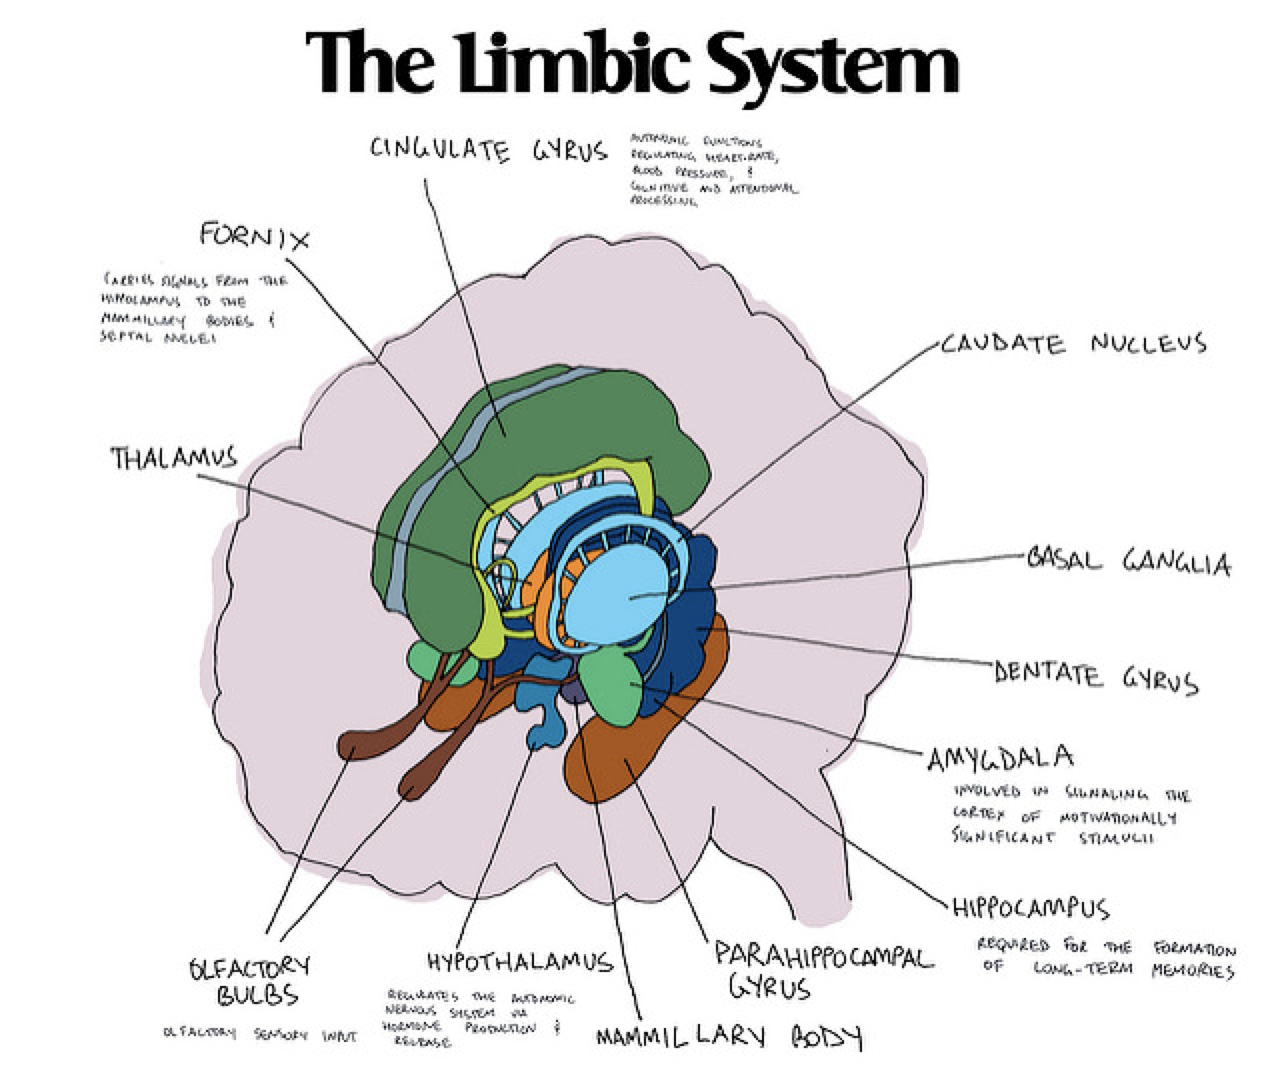 The Limbic System
CINGULATE GYRUS
AUTONOMIC FUNCTIONS
REGULATING HEART-RATE,
BLOOD PRESSURE, &
COGNITIVE AND ATTENTIONAL
PROCESSING
FORNIX
CARRIES SIGNALS FROM THE
HIPPOCAMPUS TO THE
MAMMILLARY BODIES &
SEPTAL NUCLEI
CAUDATE NUCLEUS
THALAMUS
BASAL GANGLIA
DENTATE GYRUS
AMYGDALA
INVOLVED IN SIGNALING THE
CORTEX OF MOTIVATIONALLY
SIGNIFICANT STIMULII
HIPPOCAMPUS
REQUIRED FOR THE FORMATION
OF LONG-TERM MEMORIES
OLFACTORY
BULBS
OLFACTORY SENSORY INPUT
HYPOTHALAMUS
REGULATES THE AUTONOMIC
NERVOUS SYSTEM VIA
HORMONE PRODUCTION &
RELEASE
PARAHIPPOCAMPAL
GYRUS
MAMMILLARY BODY